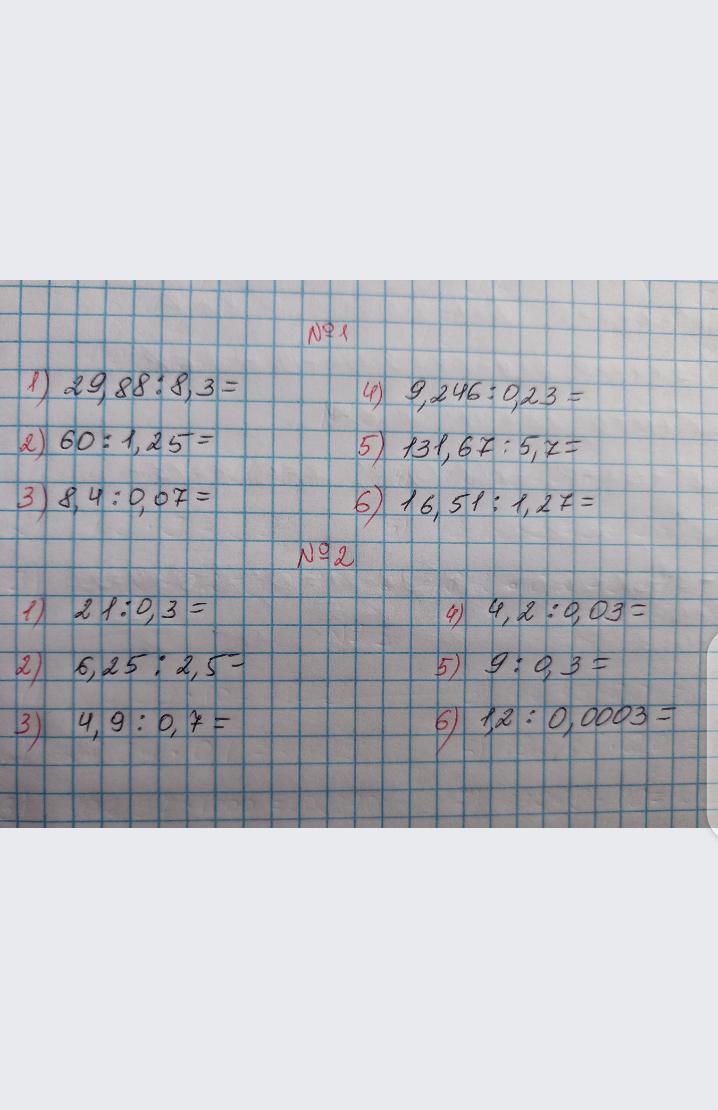 №1
1) 29,88:8,3=
4) 9,246:0,23=
2) 60:1,25=
5) 131,67:5,7=
3) 8,4:0,07=
6) 16,51:1,27=
№2
1) 21:0,3=
4) 4,2:0,03=
2) 6,25:2,5=
5) 9:0,3=
3) 4,9:0,7=
6) 1,2:0,0003=